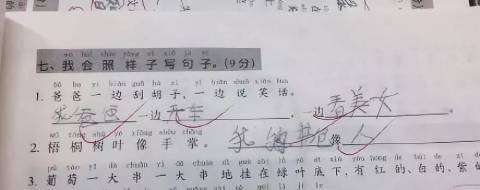 wǒ huì zhào yàng zi xiě jù zi
七、我会照样子写句子。(9分)
bà ba yì biān guā hú zi yì biān shuō xiào hua
1. 爸爸一边刮胡子,一边说笑话。
我爸爸一边开车,一边看美女。
wú tóng shù yè xiàng shǒu zhǎng
2. 梧桐树叶像手掌。我的书包像人
pú táo yí dà chuàn yí dà chuàn de guà zài lǜ yè dǐ xià yǒu hóng de bái de
3. 葡萄一大串一大串地挂在绿叶底下,有红的、白的、紫